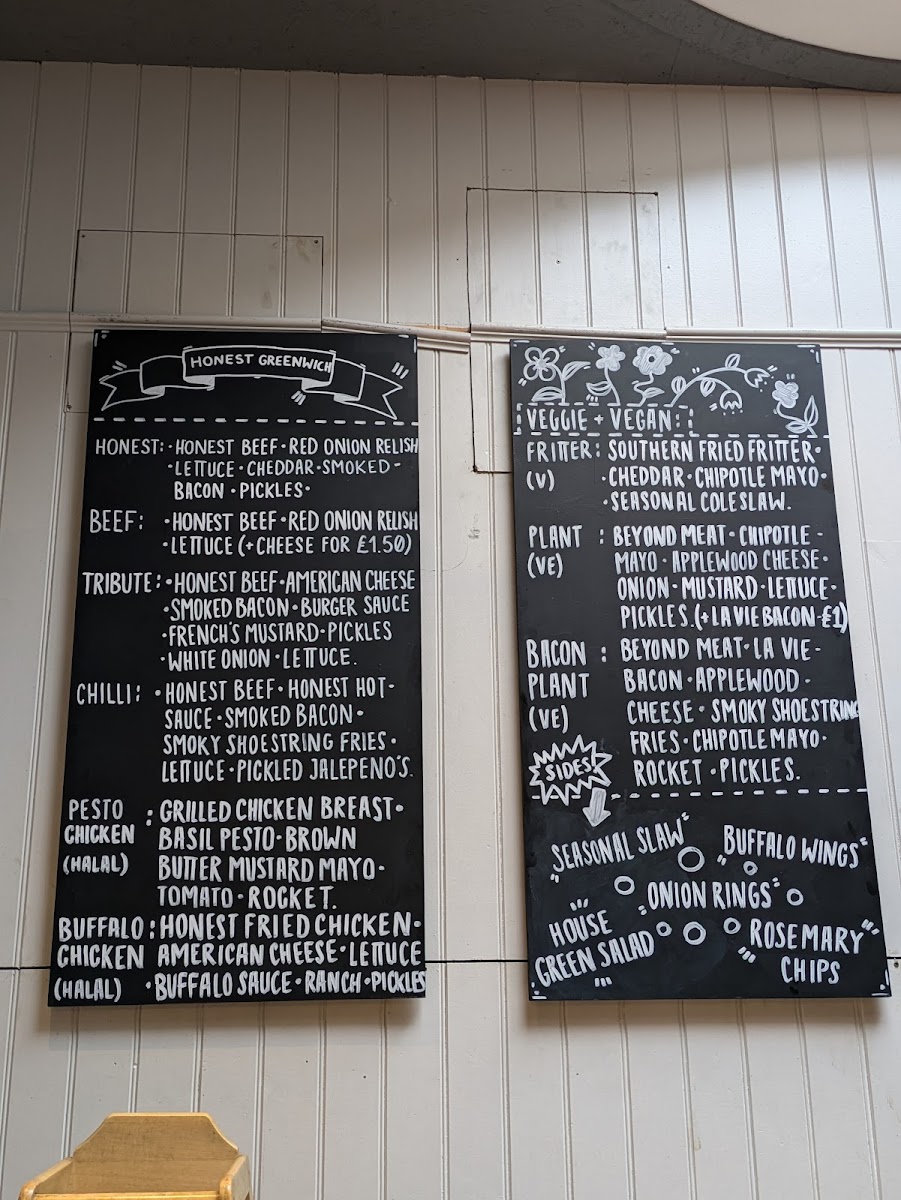 HONEST GREENWICH
HONEST: · HONEST BEEF · RED ONION RELISH
· LETTUCE · CHEDDAR · SMOKED ·
BACON · PICKLES ·
BEEF: · HONEST BEEF · RED ONION RELISH
· LETTUCE (+ CHEESE FOR £1.50)
TRIBUTE: · HONEST BEEF · AMERICAN CHEESE
· SMOKED BACON · BURGER SAUCE
· FRENCH'S MUSTARD · PICKLES
· WHITE ONION · LETTUCE.
CHILLI: · HONEST BEEF · HONEST HOT ·
SAUCE · SMOKED BACON ·
SMOKY SHOESTRING FRIES ·
LETTUCE · PICKLED JALEPENO'S.
PESTO : GRILLED CHICKEN BREAST ·
CHICKEN BASIL PESTO · BROWN
(HALAL) BUTTER MUSTARD MAYO ·
TOMATO · ROCKET.
BUFFALO : HONEST FRIED CHICKEN ·
CHICKEN AMERICAN CHEESE · LETTUCE
(HALAL) · BUFFALO SAUCE · RANCH · PICKLES
VEGGIE + VEGAN:
FRITTER: SOUTHERN FRIED FRITTER ·
(V) · CHEDDAR · CHIPOTLE MAYO ·
· SEASONAL COLESLAW.
PLANT : BEYOND MEAT · CHIPOTLE ·
(VE) MAYO · APPLEWOOD CHEESE ·
ONION · MUSTARD · LETTUCE ·
PICKLES. (+ LA VIE BACON £1)
BACON : BEYOND MEAT · LA VIE ·
PLANT BACON · APPLEWOOD ·
(VE) CHEESE · SMOKY SHOESTRING
FRIES · CHIPOTLE MAYO ·
ROCKET · PICKLES.
SIDES
SEASONAL SLAW
BUFFALO WINGS
ONION RINGS
HOUSE
GREEN SALAD
ROSEMARY
CHIPS